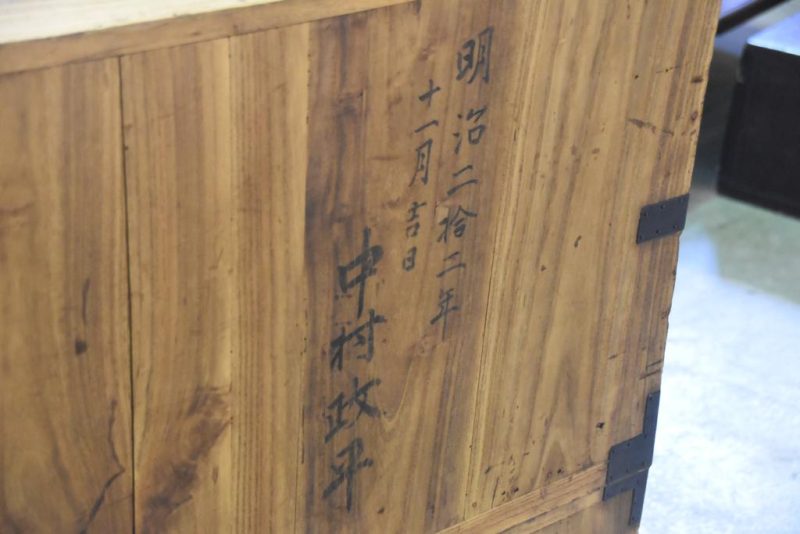 明治二拾二年
十一月吉日
中村政平